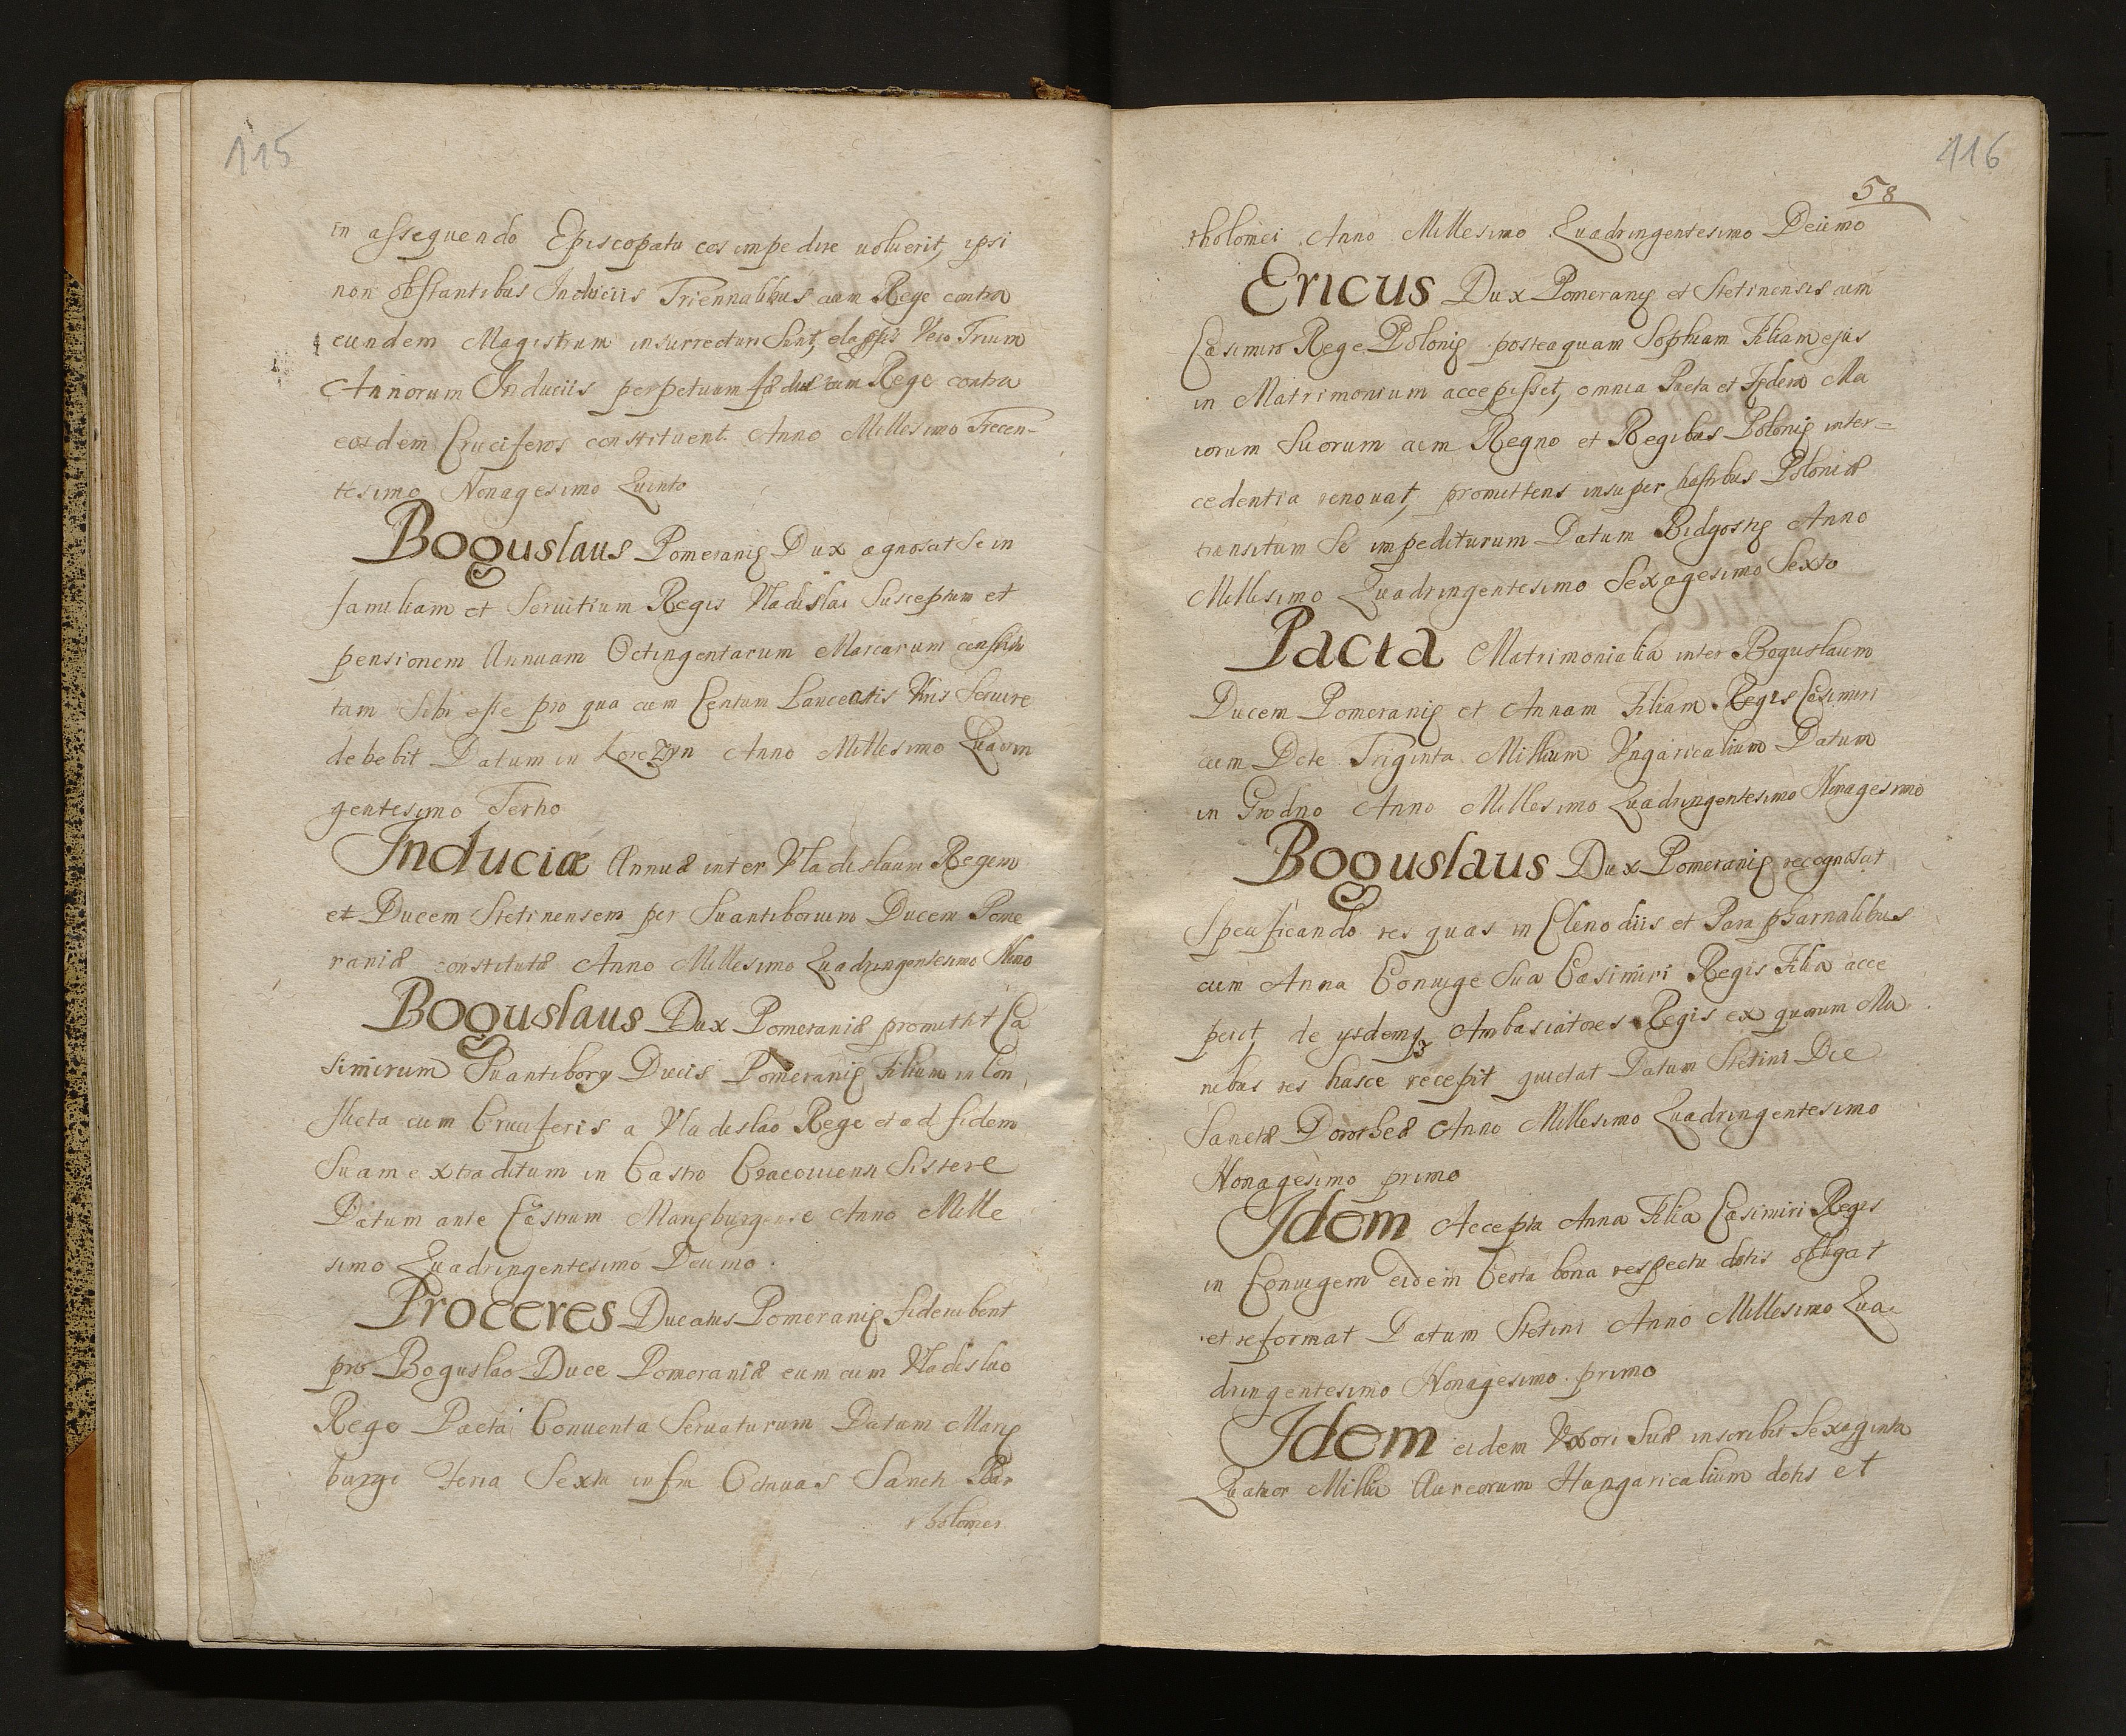 115
in assequendo Episcopatu eos impedire uoluerit, ipsi
non obstantibus Induciis Triennalibus cum Rege contra
eundem Magistrum insurrecturi Sunt, elapsis Vero Trium
Annorum Induciis perpetuum fædus cum Rege contra
eosdem Cruciferos constituent. Anno Millesimo Trecen-
tesimo Nonagesimo Quinto
Boguslaus Pomeranię Dux agnoscit Se in
familiam et Seruitium Regis Vladislai Susceptum et
pensionem Annuam Octingentarum Marcarum constitu
tam Sibi esse pro qua cum Centum Lanceatis Viris Seruire
debebit Datum in Korczyn Anno Millesimo Quadrin
gentesimo Tertio
Induciæ Annuæ inter Vladislaum Regem
et Ducem Stetinensem per Suantiborum Ducem Pome
raniæ constitutæ Anno Millesimo Quadringentesimo Nono
Boguslaus Dux Pomeraniæ promittit Ca
simirum Suantibory Ducis Pomeranię Filium in Con
flictu cum Cruciferis a Vladislao Rege et ad fidem
Suam extraditum in Castro Cracouiensi Sistere
Datum ante Castrum Maryburgense Anno Mille
simo Quadringentesimo Decimo.
Proceres Ducatus Pomeranię fideiubent
pro Boguslao Duce Pomeraniæ eum cum Vladislao
Rege Pacta Conuenta Seruaturum Datum Marię
burgi Feria Sexta infra Octauas Sancti Bar
tholomei
116
58
tholomei Anno Millesimo Quadringentesimo Decimo
Ericus Dux Pomeranię et Stetinensis cum
Casimiro Rege Polonię posteaquam Sophiam Filiam ejus
in Matrimonium accepisset, omnia Pacta et Fędera Ma
iorum Suorum cum Regno et Regibus Polonię inter-
cedentia renouat, promittens insuper hostibus Poloniæ
transitum Se impediturum Datum Bidgostię Anno
Millesimo Quadringentesimo Sexagesimo Sexto
Pacta Matrimonialia inter Boguslaum
Ducem Pomeranię et Annam Filiam Regis Casimiri
cum Dote Triginta Millium Vngaricalium Datum
in Grodno Anno Millesimo Quadringentesimo Nonagesimo
Boguslaus Dux Pomeranię recognoscit
Specificando res quas in Clenodiis et Parapharnalibus
cum Anna Coniuge Sua Casimiri Regis Filia acce
perit, de ysdemq3 Ambasciatores Regis ex quorum Ma
nibus res hasce recepit quietat Datum Stetini Die
Sanctæ Dorotheæ Anno Millesimo Quadringentesimo
Nonagesimo primo
Idem Accepta Anna Filia Casimiri Regis
in Coniugem eidem Certa bona respectu dotis obligat
et reformat Datum Stetini Anno Millesimo Qua
dringentesimo Nonagesimo primo
Idem eidem Vxori Suæ inscribit Sexaginta
Quatuor Millia Aureorum Hungaricalium dotis et